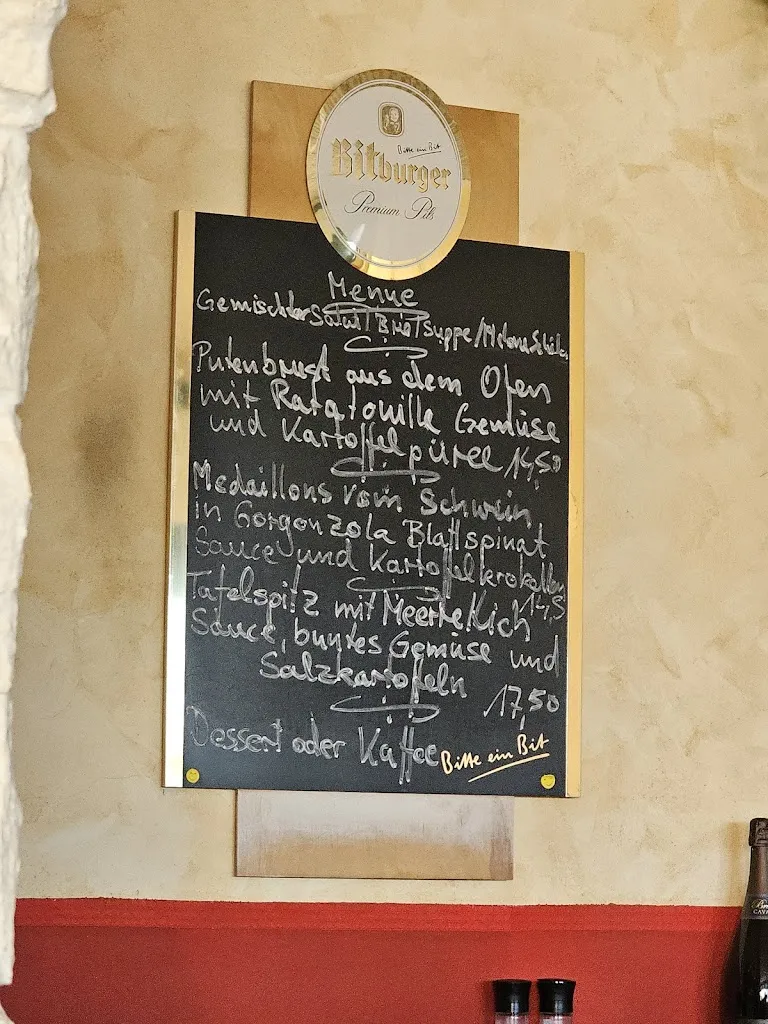 Bitte ein Bit
Bitburger
Premium Pils
Menue
Gemischter Salat
Putenbrust aus dem Ofen
mit Ratatouille Gemüse
und Kartoffelpüree 14,50
Medaillons vom Schwein
in Gorgonzola Blattspinat
Sauce und Kartoffelkroketten
14,5
Tafelspitz mit Meerrettich
Sauce, buntes Gemüse und
Salzkartoffeln
17,50
Dessert oder Kaffee
Bitte ein Bit